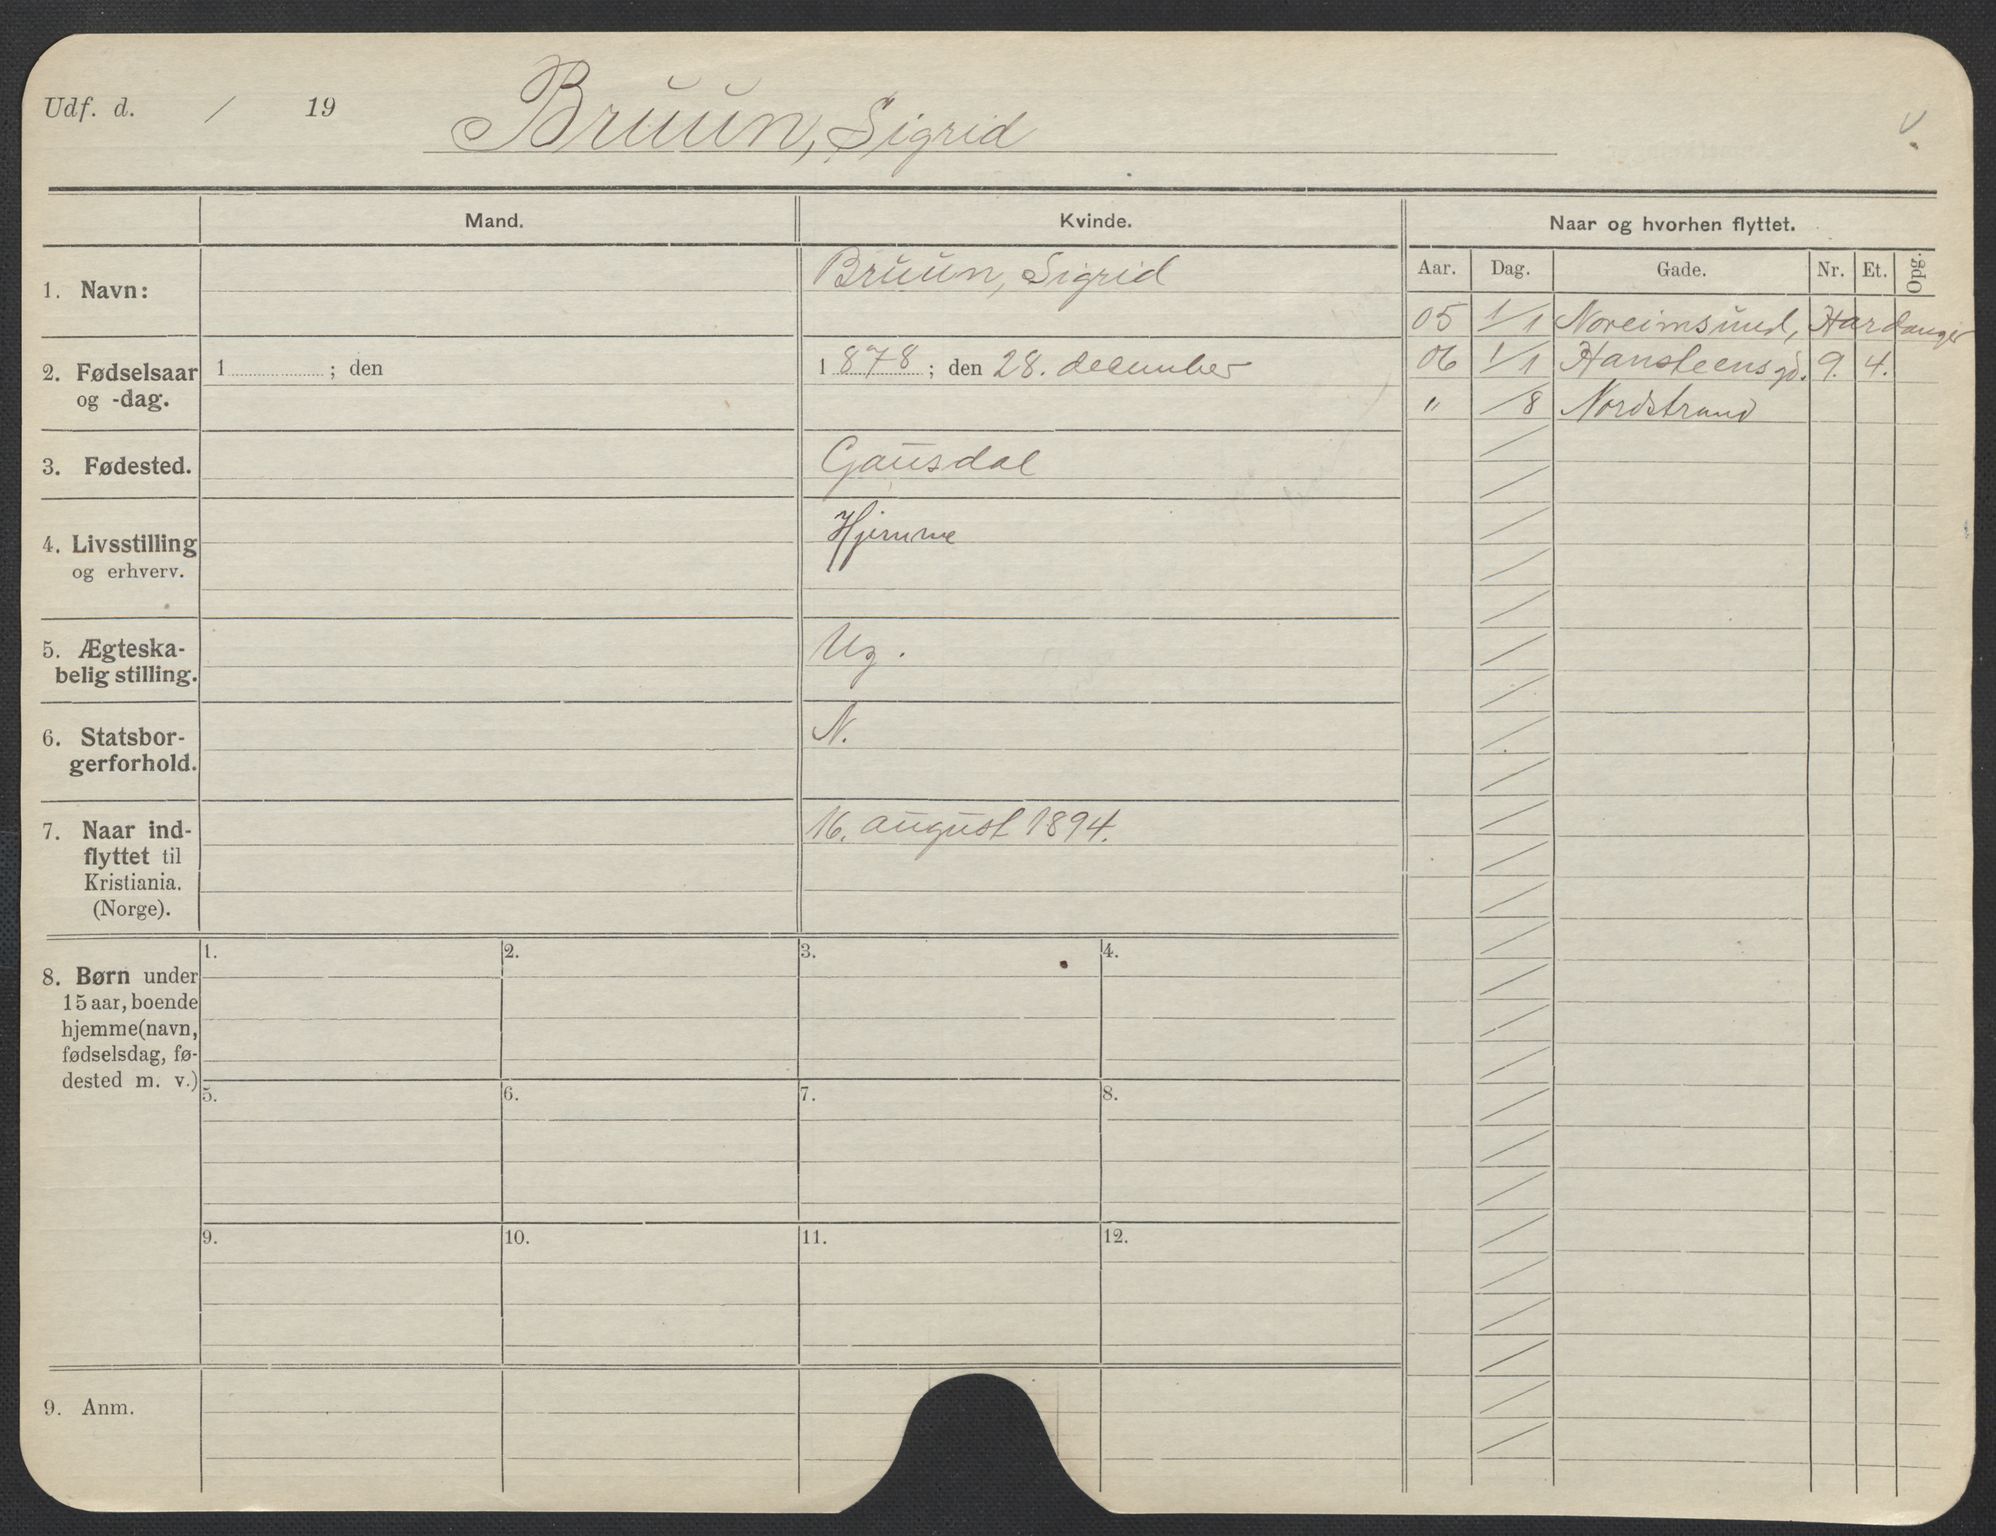 Udf. d. / 19
Bruun, Sigrid
Mand.
Kvinde.
Naar og hvorhen flyttet.
Aar. Dag. Gade. Nr. Et. Opg.
1. Navn:
Bruun, Sigrid
05 1/1 Noreimsund, Hardanger
2. Fødselsaar
og -dag.
1 ; den
1 878 ; den 28. december
06 1/1 Hansteens gd. 9. 4.
" /8 Nordstrand
3. Fødested.
Gausdal
4. Livsstilling
og erhverv.
Hjemme
5. Ægteska-
belig stilling.
Ug.
6. Statsbor-
gerforhold.
N.
7. Naar ind-
flyttet til
Kristiania.
(Norge).
16. august 1894.
8. Børn under
15 aar, boende
hjemme (navn,
fødselsdag, fø-
dested m. v.)
1. 2. 3. 4.
5. 6. 7. 8.
9. 10. 11. 12.
9. Anm.